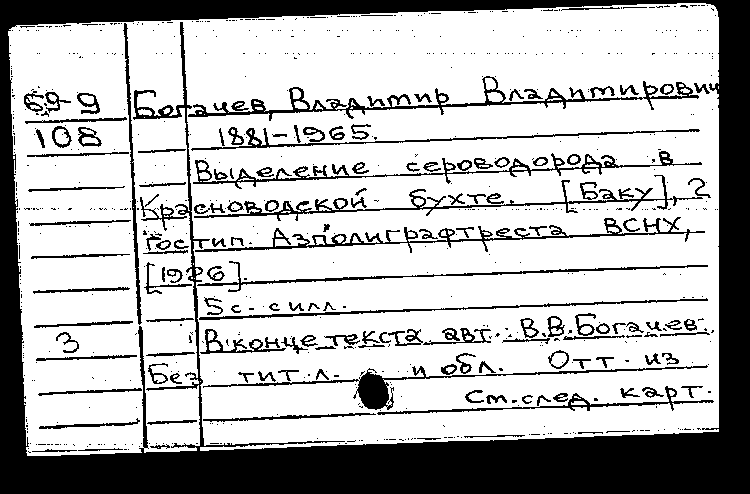 69-9 Богачев, Владимир Владимирович
108 1881-1965.
Выделение сероводорода в
Красноводской бухте. [Баку], 2
гостип. Азполиграфтреста ВСНХ,
[1926].
5 с. с илл.
3 В конце текста авт.: В.В.Богачев.
Без тит.л. и обл. Отт. из
См.след. карт.